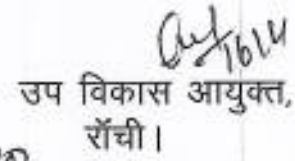 16/4
उप विकास आयुक्त,
राँची।